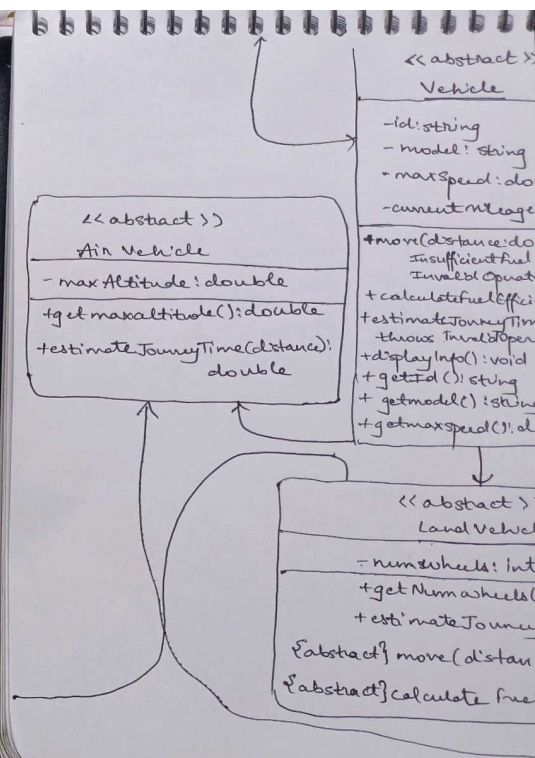 << abstract >>
Vehicle
-id: string
- model: string
- maxspeed: do
-current mileage
+move(distance:do
Insufficient fuel
Invalid Operat
+ calculatefuelEffici
+estimateJourneyTim
throws InvalidOper
+displayInfo(): void
+ getId (): string
+ getmodel() : string
+getmaxspeed(): do
<< abstract >>
Air Vehicle
- max Altitude: double
+get maxaltitude(): double
+estimate JourneyTime(distance):
double
<< abstract >
Land Vehicl
- numwheels: int
+get Numwheels(
+estimate Journey
{abstract} move (distan
{abstract} calculate Fue